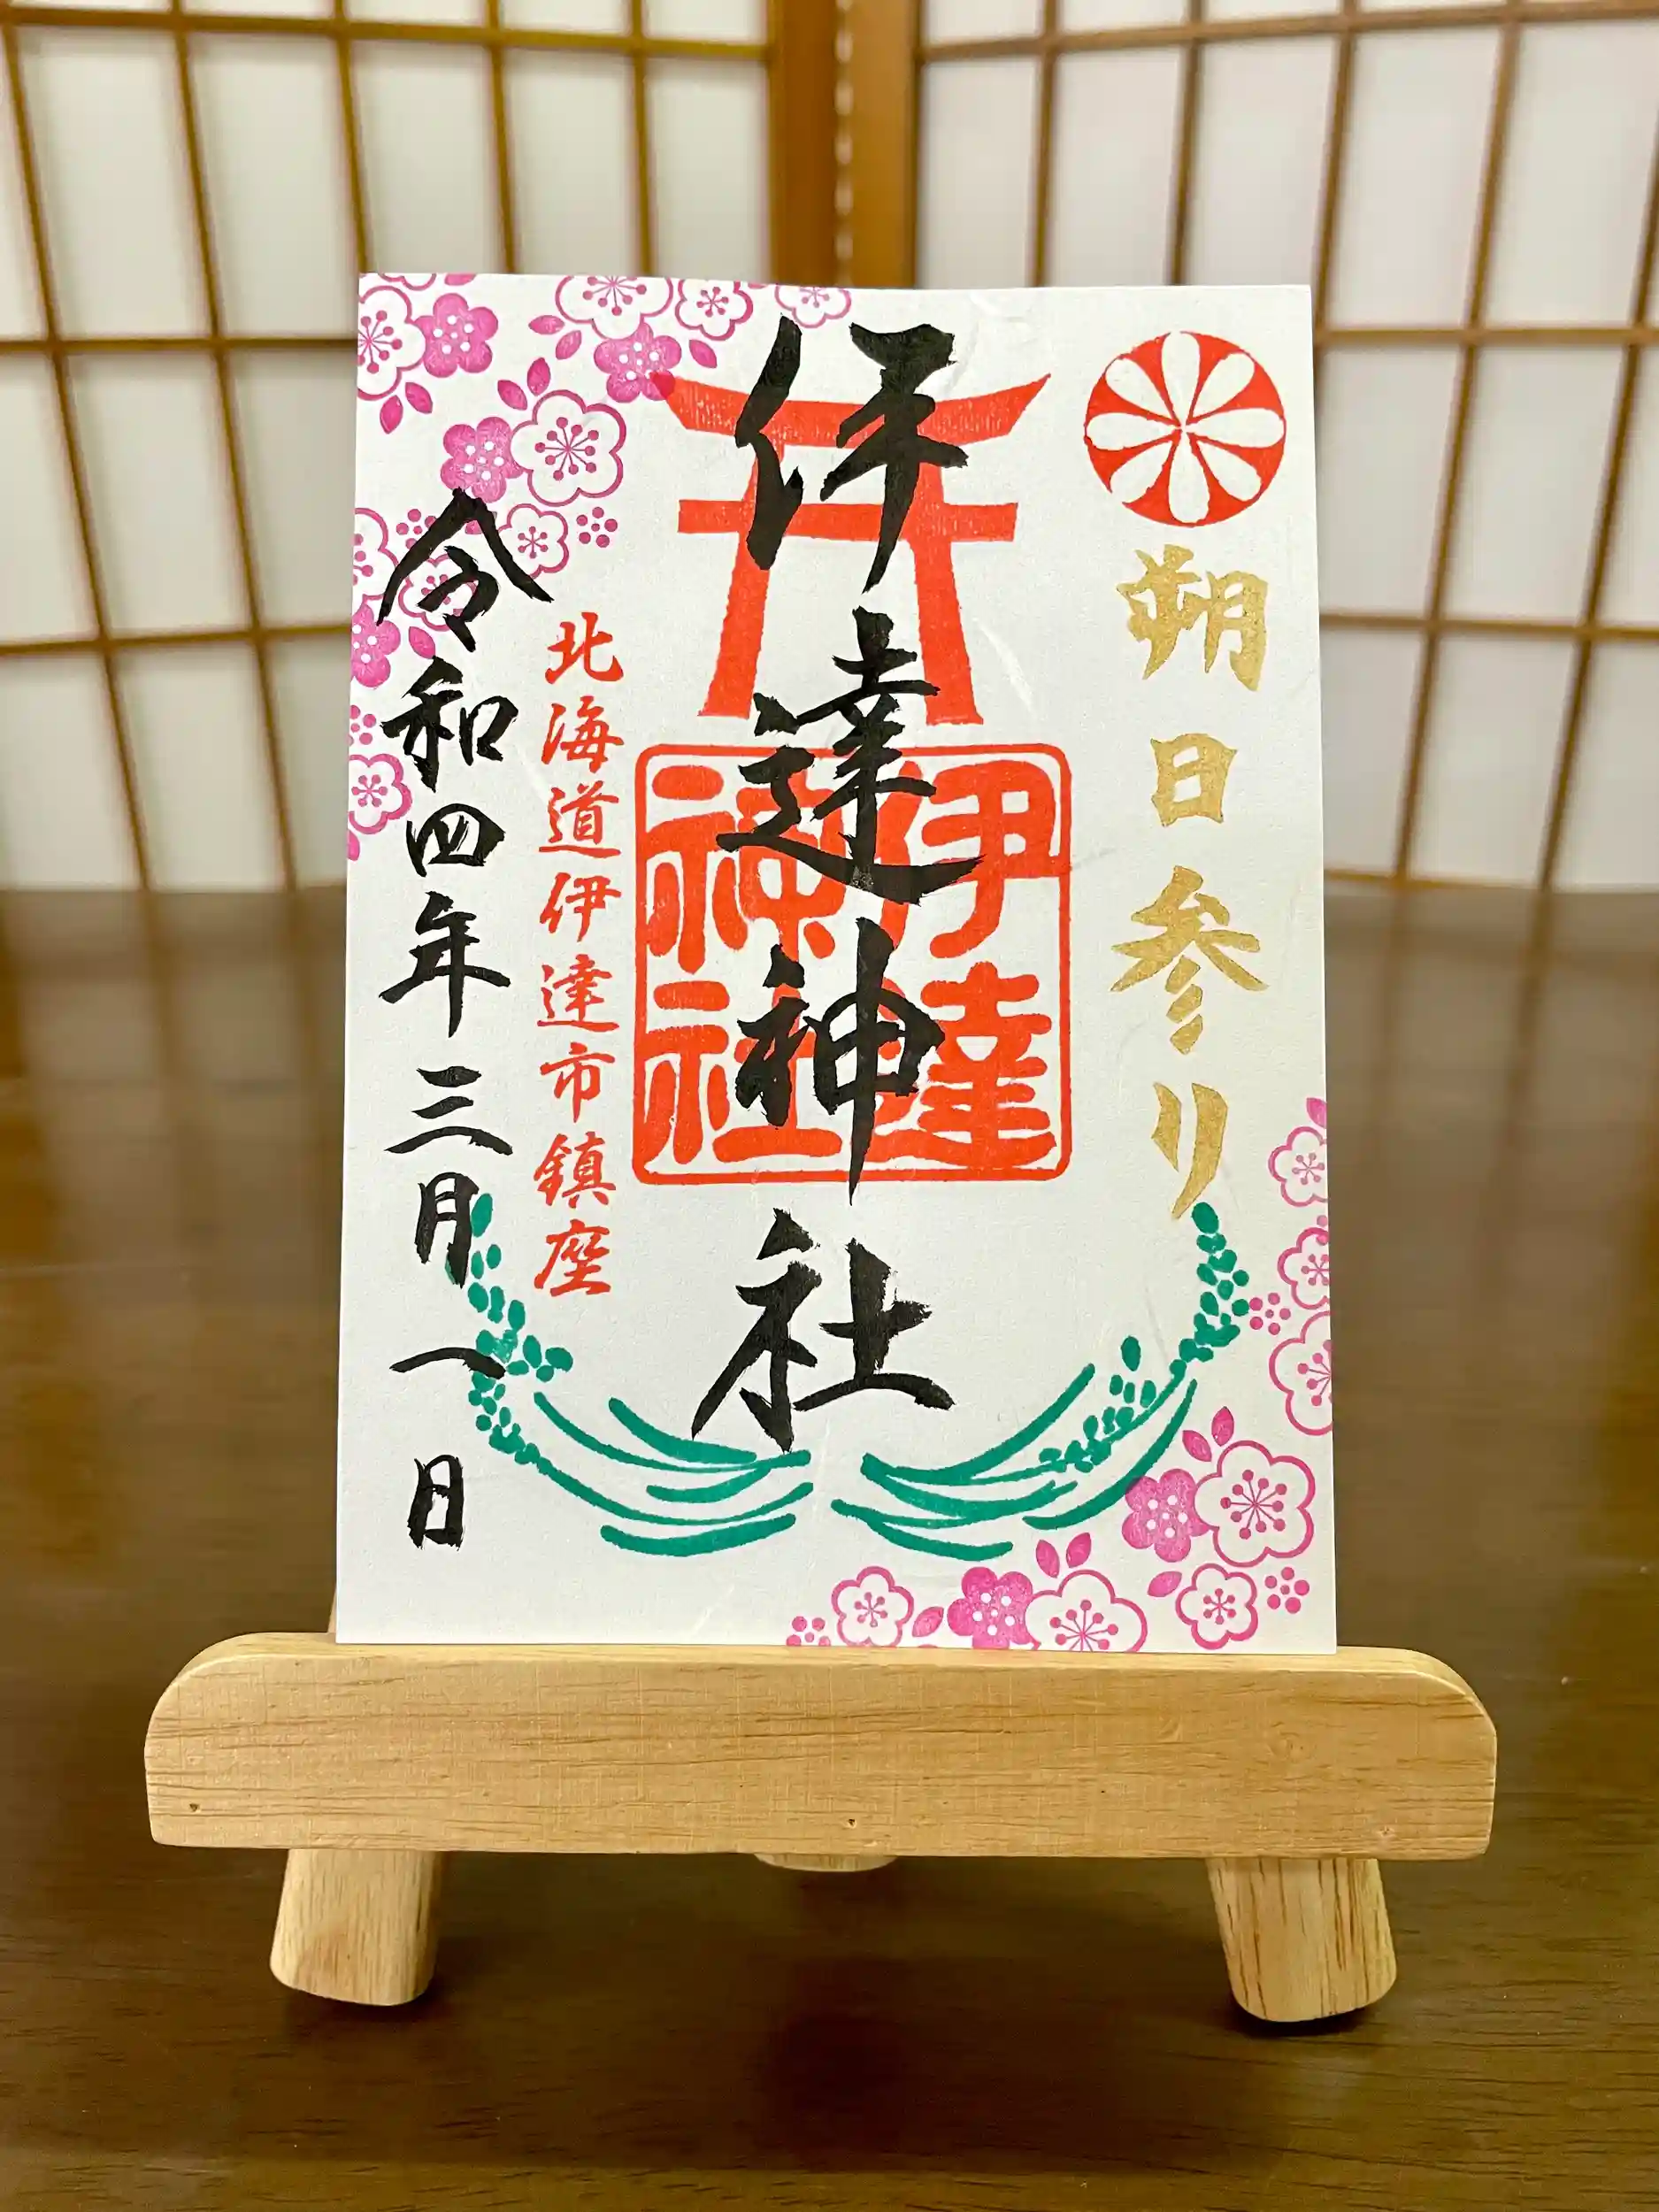 朔日参り
伊達神社
伊達
神社
北海道伊達市鎮座
令和四年三月一日